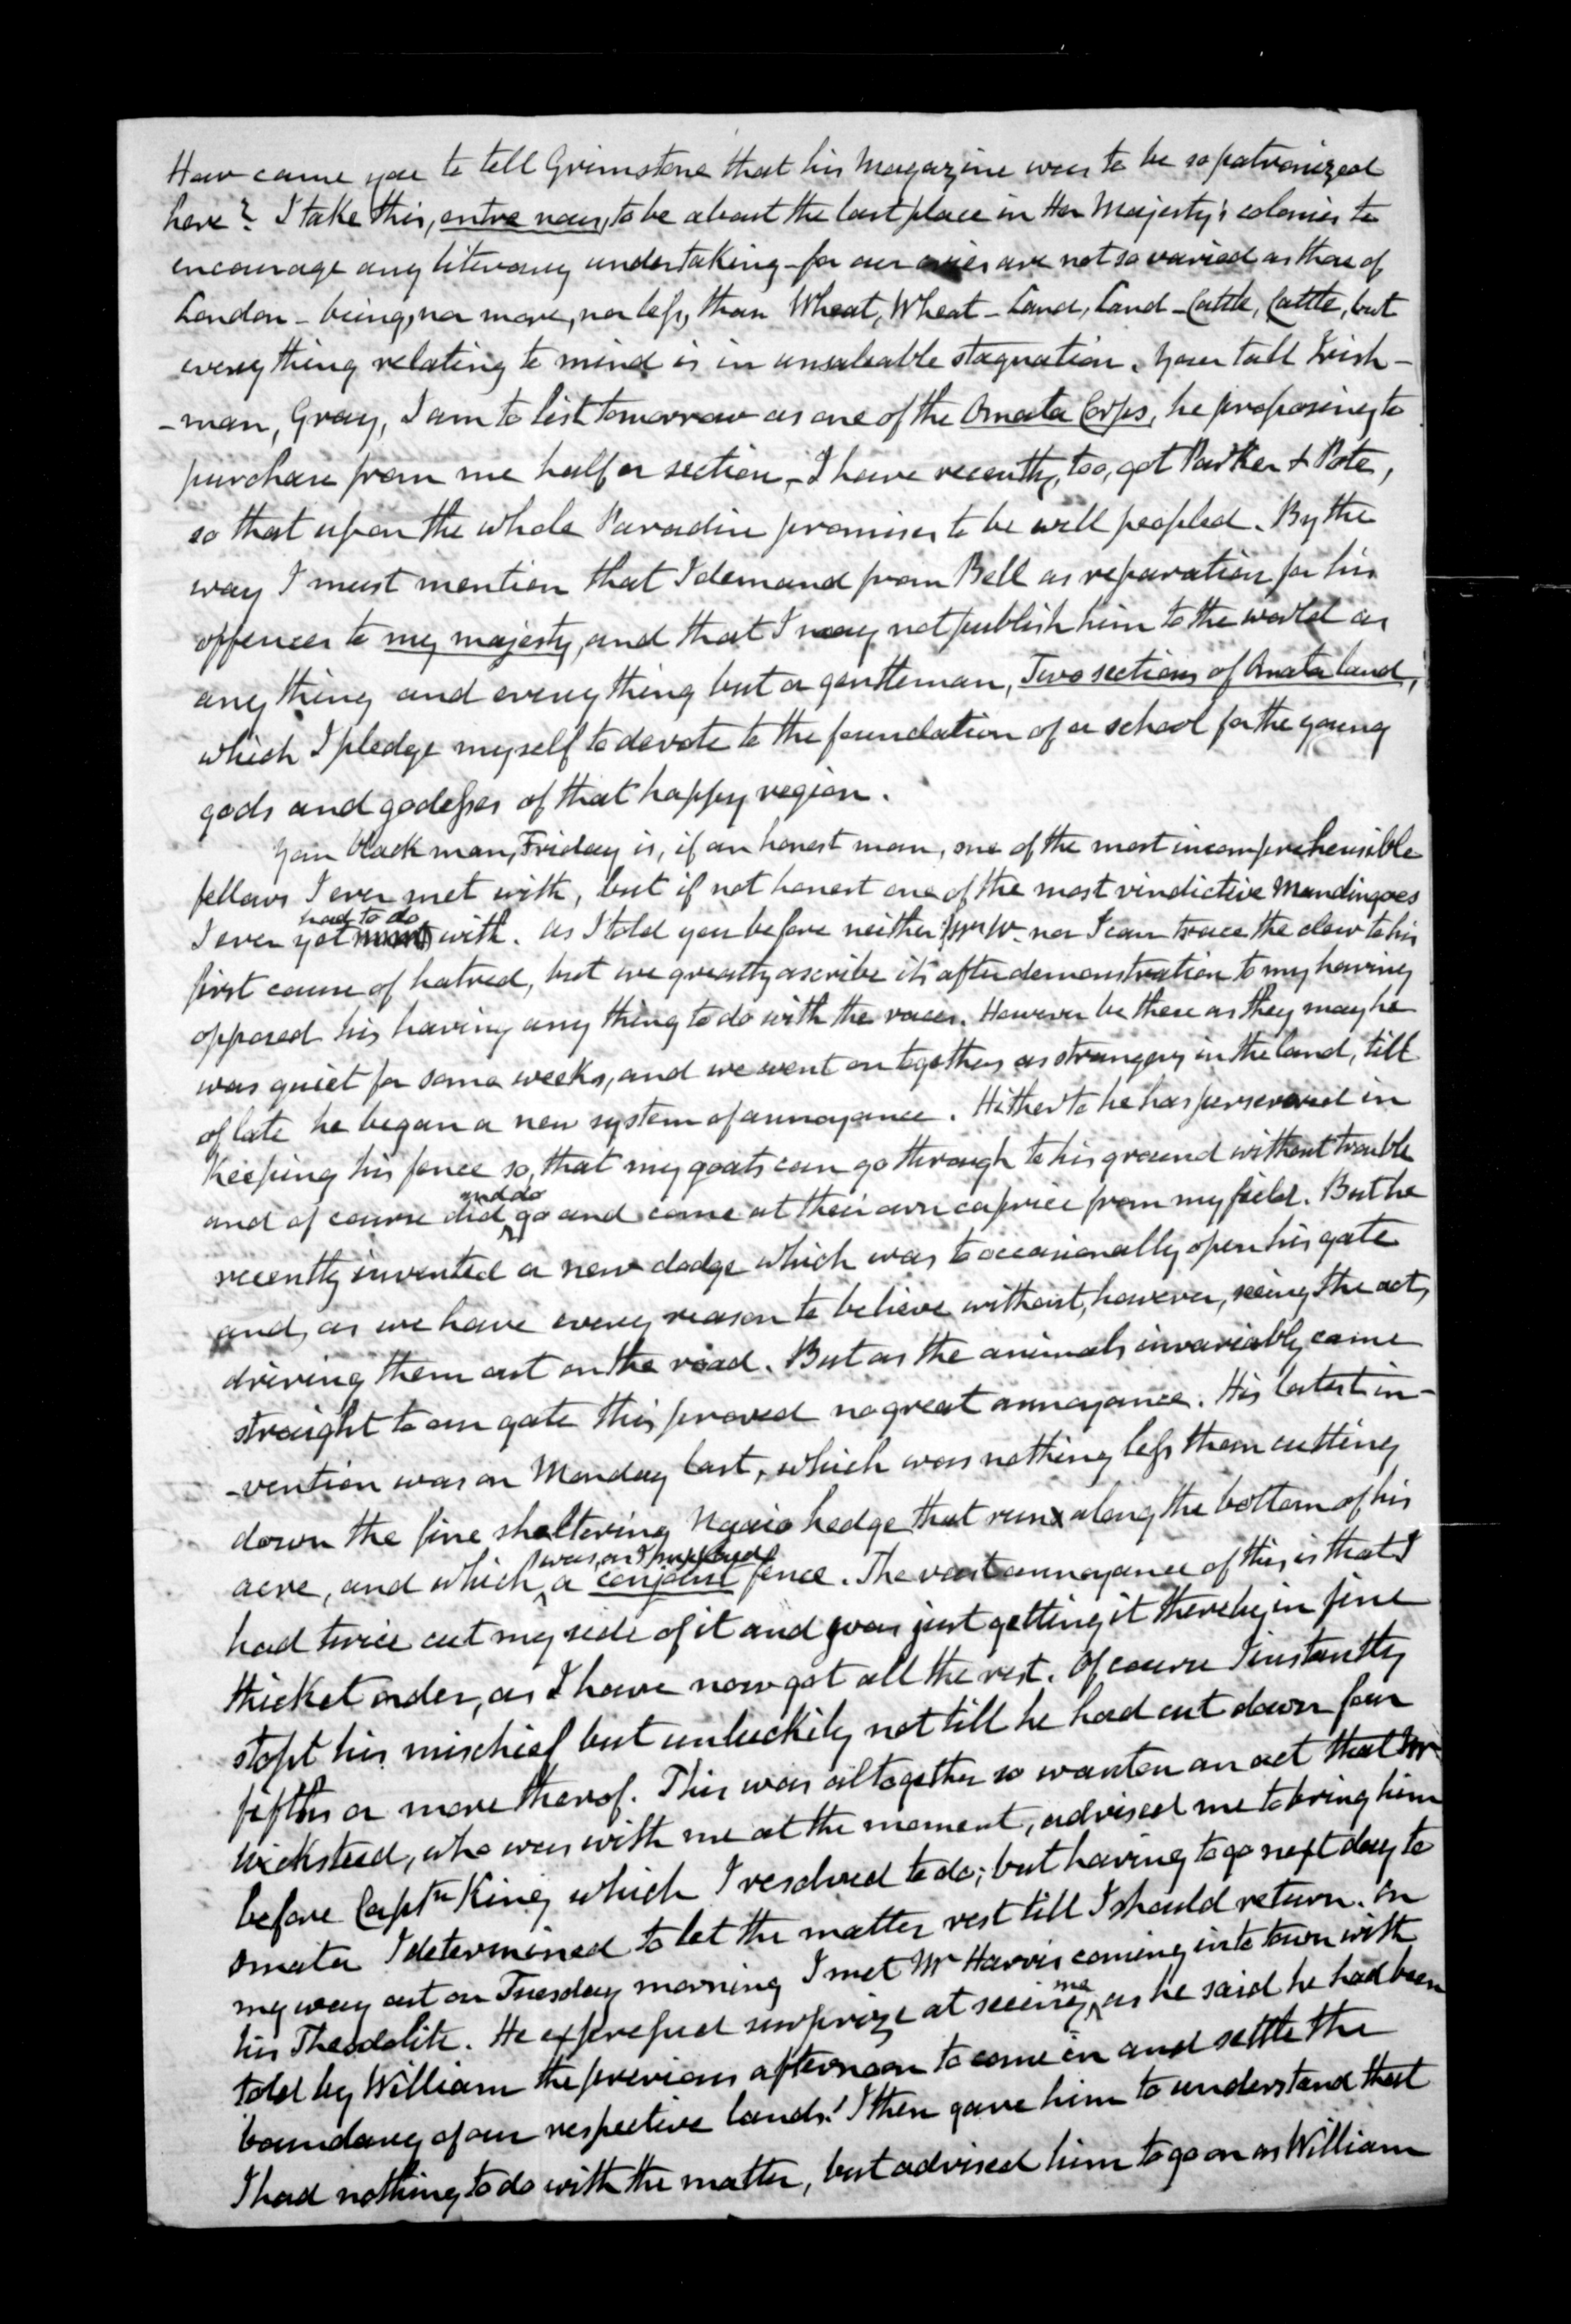 How came you to tell Grimstone that his Magazine was to be so patronized
here? I take this, entre nous, to be about the last place in Her Majesty's colonies to
encourage any literary undertaking - for our cries are not so varied as those of
London - being, no more, nor less, than Wheat, Wheat - Land, Land - Cattle, Cattle, but
every thing relating to mind is in unsaleable stagnation. Your tall Irish-
-man, Gray, I am to list tomorrow as one of the Omata Corps, he proposing to
purchase from me half a section, - I have recently, too, got Parker & Pote,
so that upon the whole Paradise promises to be well peopled. By the
way I must mention that I demand from Bell as reparation for his
offences to my majesty, and that I may not publish him to the world as
any thing and every thing but a gentleman, Two sections of Omata land,
which I pledge myself to devote to the foundation of a school for the young
gods and godesses of that happy region.
Your black man, Friday is, if an honest man, one of the most incomprehensible
fellows I ever met with, but if not honest one of the most vindictive Mandingoes
I ever yet had to do with. As I told you before neither Mr W. nor I can trace the clew to his
first cause of hatred, but we greatly ascribe its after demonstration to my having
opposed his having any thing to do with the races. However be these as they may he
was quiet for some weeks, and we went on together as strangers in the land, till
of late he began a new system of annoyance. Hitherto he has persevered in
keeping his fence so, that my goats can go through to his ground without trouble
and of course did and do go and come at their own caprice from my field. But he
recently invented a new dodge which was to occasionally open his gate
and, as we have every reason to believe without, however, seeing the act,
driving them out on the road. But as the animals invariably came
straight to our gate this proved no great annoyance. His latest in-
-vention was on Monday last, which was nothing less than cutting
down the fine sheltering Ngaio hedge that runs along the bottom of his
acre, and which was, as I supposed a conjoint fence. The vast annoyance of this is that I
had twice cut my side of it and was just getting it thereby in fine
thicket order, as I have now got all the rest. Of course I instantly
stopt his mischief but unluckily not till he had cut down four
fifths or more therof. This was altogether so wanton an act that Mr
Wicksteed, who was with me at the moment, advised me to bring him
before Captn King which I resolved to do; but having to go next day to
Omata I determined to let the matter rest till I should return. On
my way out on Tuesday morning I met Mr Harris coming into town with
his Theodolite. He expressed surprize at seeing me, as he said he had been
told by William the previous afternoon to come in and settle the
boundary of our respective lands! I then gave him to understand that
I had nothing to do with the matter, but advised him to go on as William